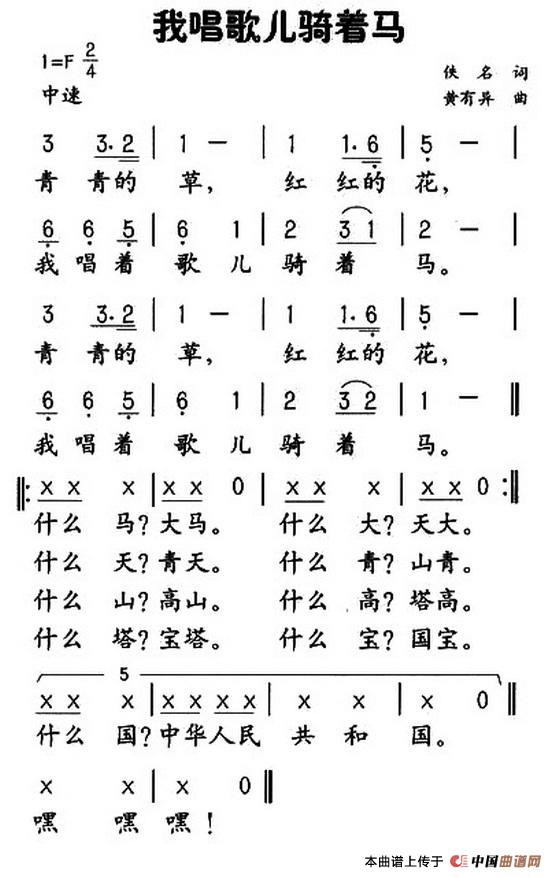 我唱歌儿骑着马
1=F 2/4
佚 名 词
中速
黄有异 曲
3 3·2 | 1 — | 1 1·6 | 5 — |
青 青的 草, 红 红的 花,
6 6 5 | 6 1 | 2 3 1 | 2 — |
我 唱 着 歌 儿 骑 着 马。
3 3·2 | 1 — | 1 1·6 | 5 — |
青 青的 草, 红 红的 花,
6 6 5 | 6 1 | 2 3 2 | 1 — ‖
我 唱 着 歌 儿 骑 着 马。
‖: X X X | X X 0 | X X X | X X 0 :‖
什么 马? 大马。 什么 大? 天大。
什么 天? 青天。 什么 青? 山青。
什么 山? 高山。 什么 高? 塔高。
什么 塔? 宝塔。 什么 宝? 国宝。
5
X X X | X X X X | X X | X 0 ‖
什么 国? 中华人民 共 和 国。
X X | X 0 ‖
嘿 嘿 嘿!
本曲谱上传于 中国曲谱网